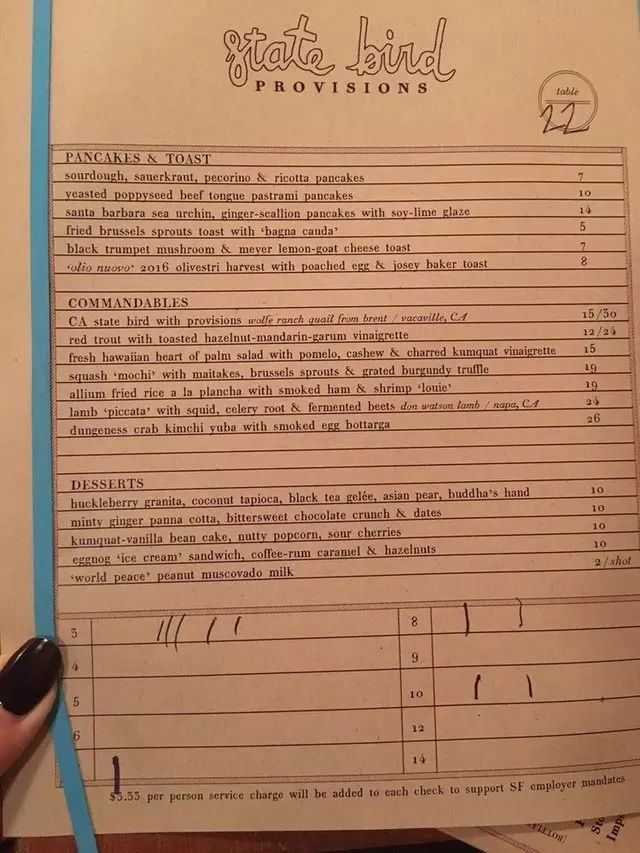 state bird
PROVISIONS
table
22
PANCAKES & TOAST
sourdough, sauerkraut, pecorino & ricotta pancakes 7
yeasted poppyseed beef tongue pastrami pancakes 10
santa barbara sea urchin, ginger-scallion pancakes with soy-lime glaze 14
fried brussels sprouts toast with 'bagna cauda' 5
black trumpet mushroom & meyer lemon-goat cheese toast 7
'olio nuovo' 2016 olivestri harvest with poached egg & josey baker toast 8
COMMANDABLES
CA state bird with provisions wolfe ranch quail from brent / vacaville, CA 15/30
red trout with toasted hazelnut-mandarin-garum vinaigrette 12/24
fresh hawaiian heart of palm salad with pomelo, cashew & charred kumquat vinaigrette 15
squash 'mochi' with maitakes, brussels sprouts & grated burgundy truffle 19
allium fried rice a la plancha with smoked ham & shrimp 'louie' 19
lamb 'piccata' with squid, celery root & fermented beets don watson lamb / napa, CA 24
dungeness crab kimchi yuba with smoked egg bottarga 26
DESSERTS
huckleberry granita, coconut tapioca, black tea gelée, asian pear, buddha's hand 10
minty ginger panna cotta, bittersweet chocolate crunch & dates 10
kumquat-vanilla bean cake, nutty popcorn, sour cherries 10
eggnog 'ice cream' sandwich, coffee-rum caramel & hazelnuts 10
'world peace' peanut muscovado milk 2/shot
3 8
4 9
5 10
6 12
14
$3.33 per person service charge will be added to each check to support SF employer mandates